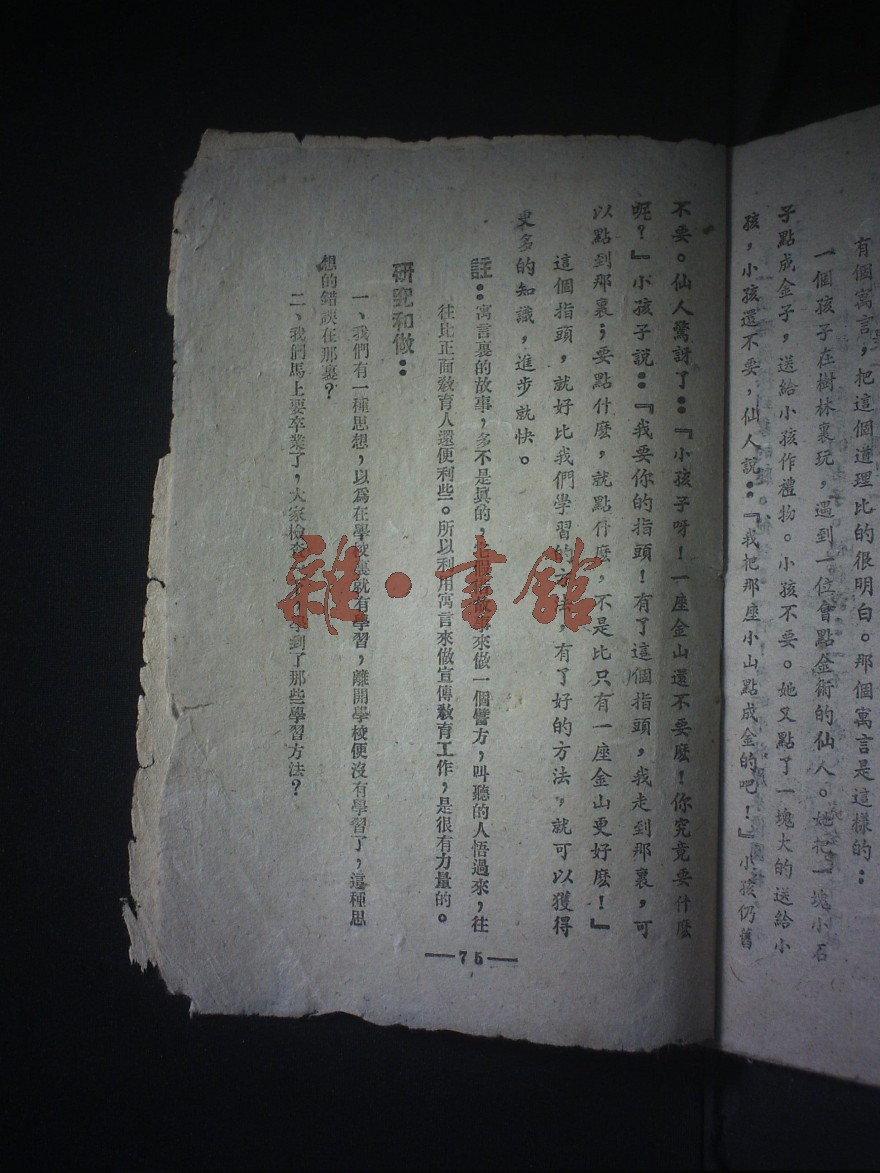 有個寓言，把這個道理比的很明白。那個寓言是這樣的：
一個孩子在樹林裏玩，遇到一位會點金術的仙人。她把一塊小石
子點成金子，送給小孩作禮物。小孩不要。她又點了一塊大的送給小
孩，小孩還不要，仙人說：『我把那座小山點成金的吧！』小孩仍舊
不要。仙人驚訝了：『小孩子呀！一座金山還不要麽！你究竟要什麽
呢？』小孩子說：『我要你的指頭！有了這個指頭，我走到那裏，可
以點到那裏；要點什麽，就點什麽，不是比只有一座金山更好麽！』
這個指頭，就好比我們學習的方法，有了好的方法，就可以獲得
更多的知識，進步就快。
註：寓言裏的故事，多不是眞的，故事來做一個譬方，叫聽的人悟過來，往
往比正面敎育人還便利些。所以利用寓言來做宣傳敎育工作，是很有力量的。
研究和做：
一、我們有一種思想，以爲在學校裏就有學習，離開學校便沒有學習了，這種思
想的錯誤在那裏？
二、我們馬上要卒業了，大家檢查學到了那些學習方法？
—75—
雜·書館